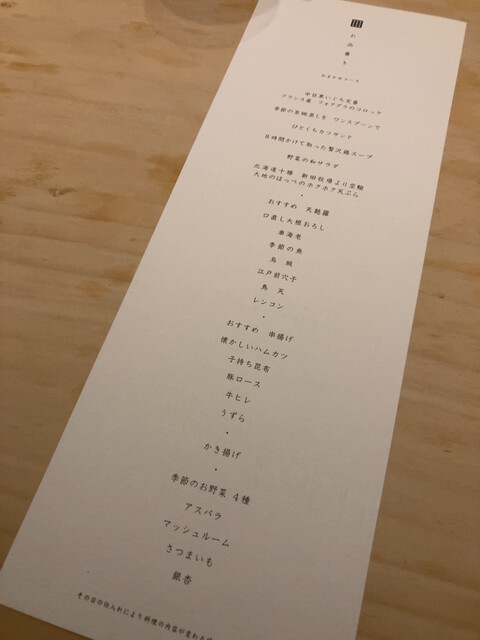 お品書き
おまかせコース
フランス産 フォアグラのコロッケ
季節の茶碗蒸しを ワンスプーンで
ひとくちカツサンド
8時間かけて取った贅沢鶏スープ
野菜の和サラダ
北海道十勝 新田牧場より空輸
大地のほっぺのホクホク天ぷら
・
おすすめ 天麩羅
口直し大根おろし
車海老
季節の魚
烏賊
江戸前穴子
鳥天
レンコン
・
おすすめ 串揚げ
懐かしいハムカツ
子持ち昆布
豚ロース
牛ヒレ
うずら
・
かき揚げ
・
季節のお野菜 4種
アスパラ
マッシュルーム
さつまいも
銀杏
その日の仕入れにより料理の内容が変わる